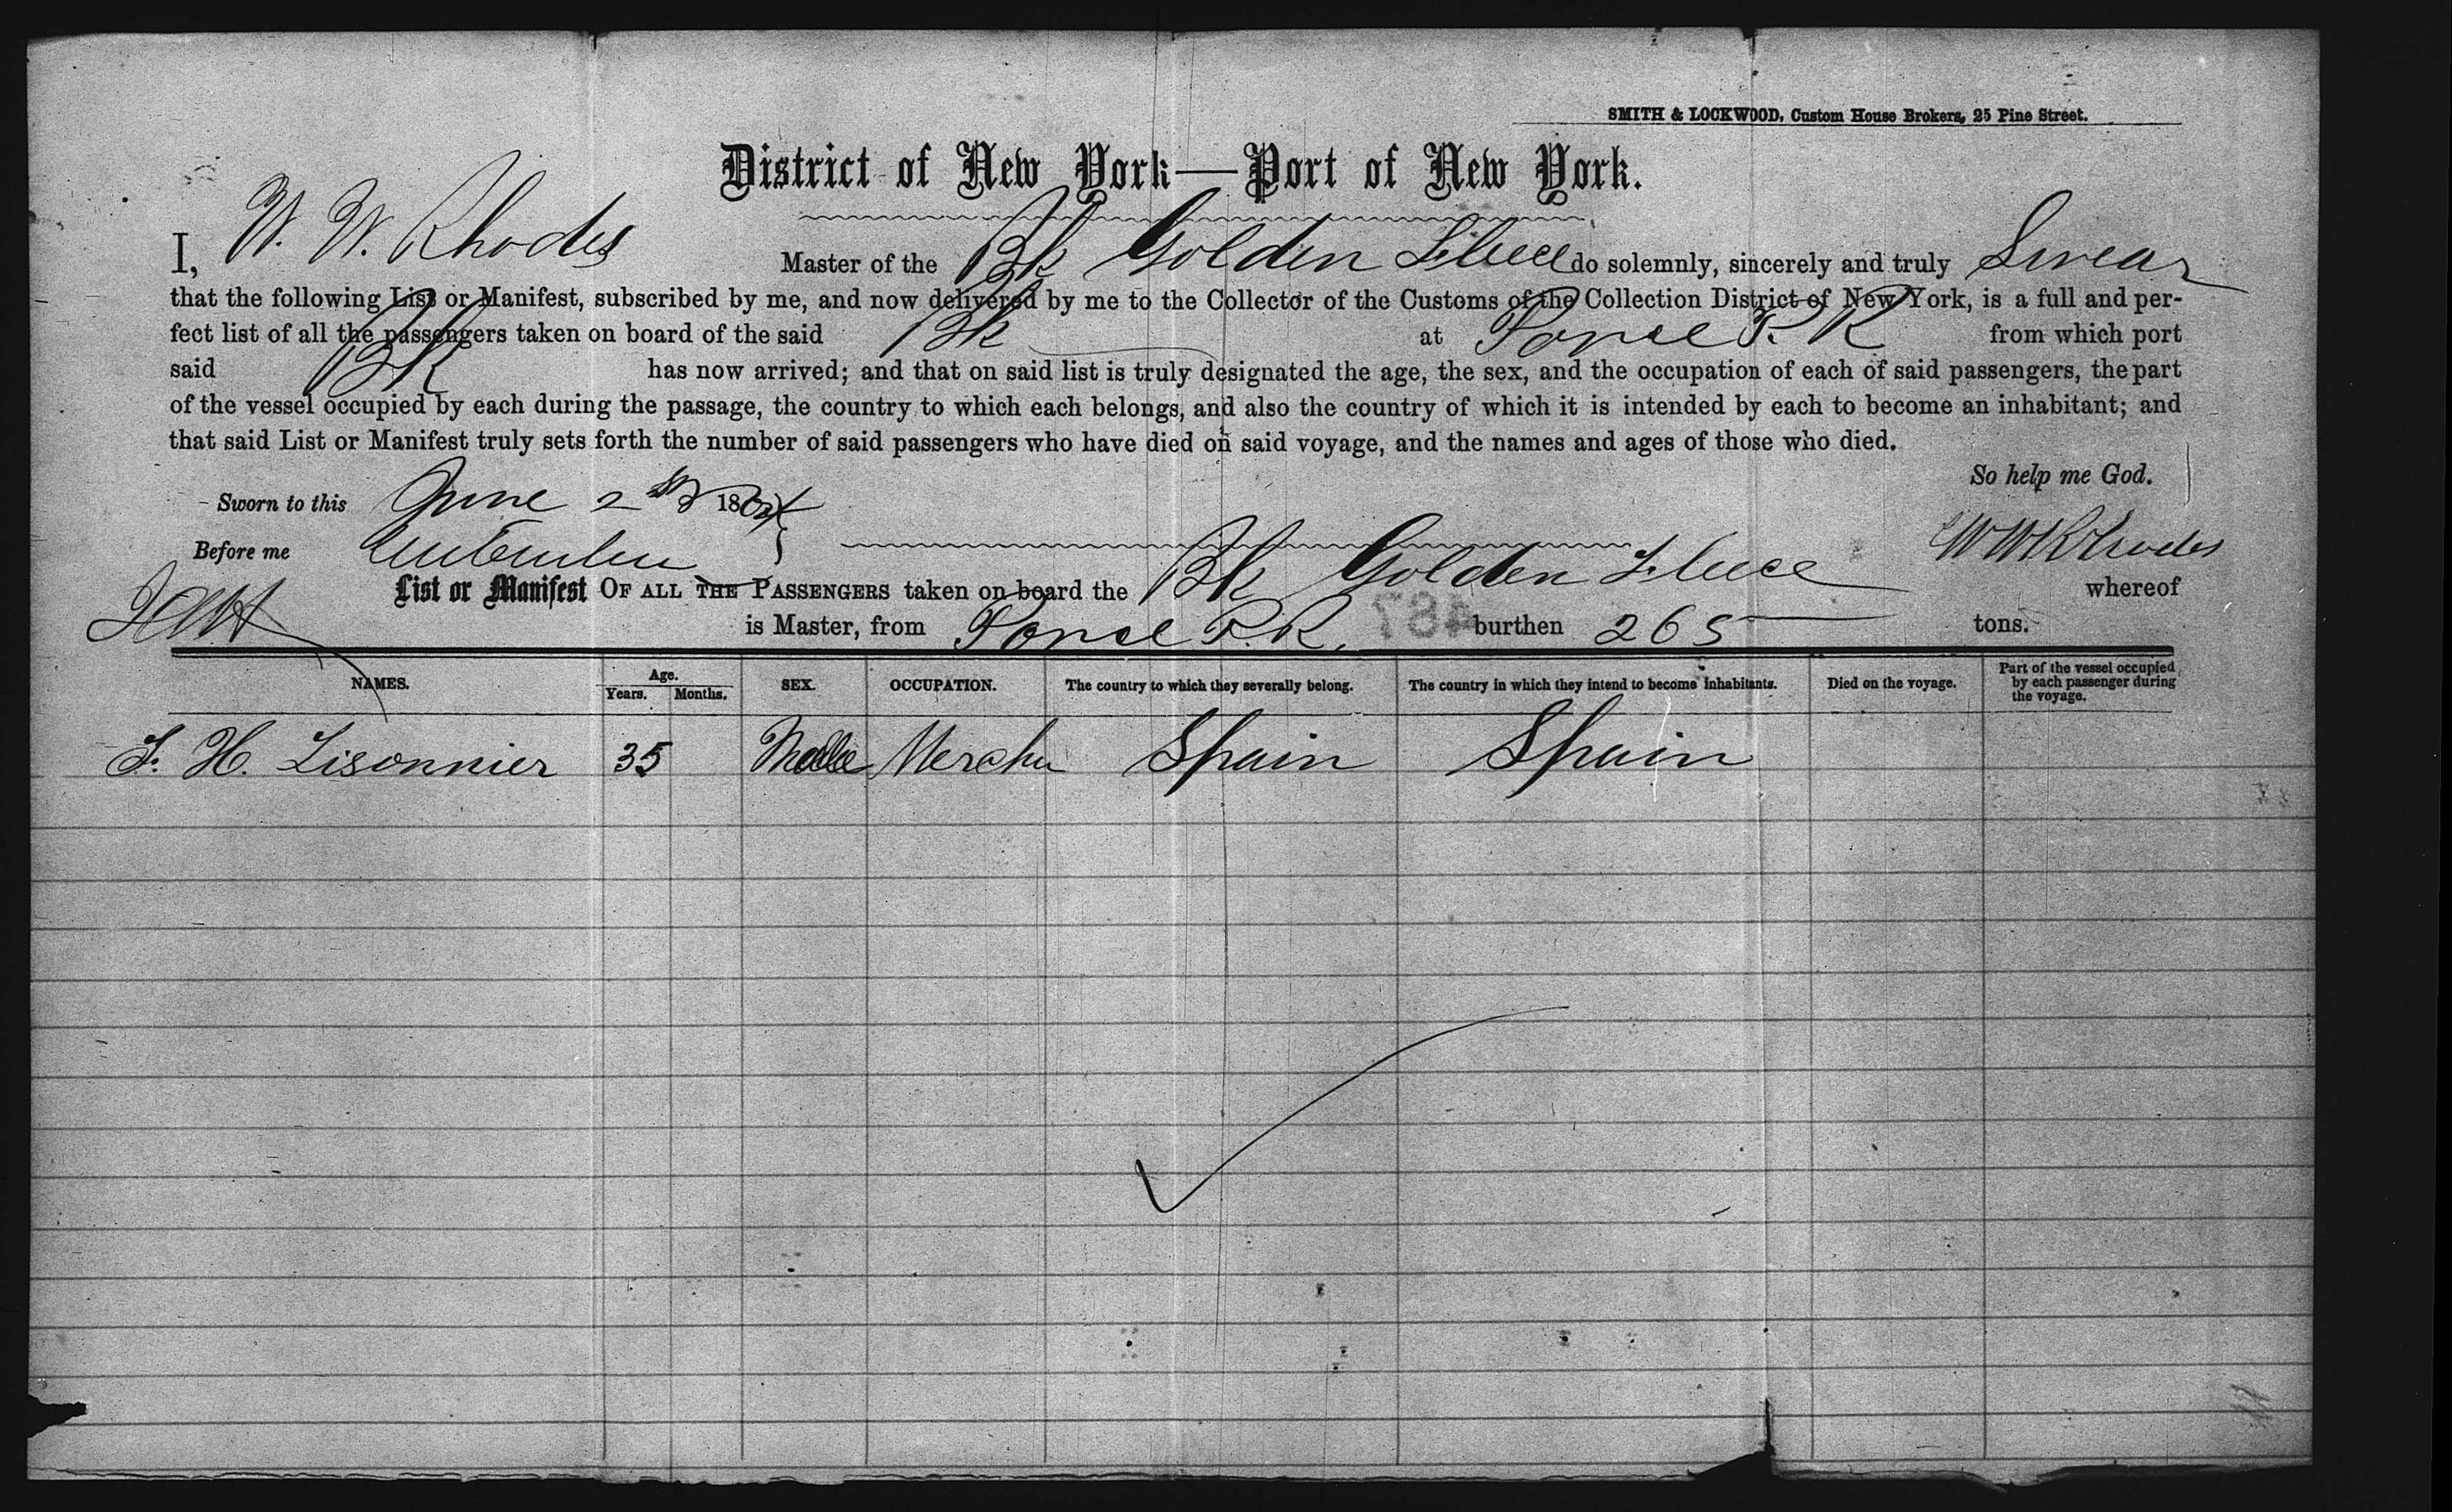 SMITH & LOCKWOOD, Custom House Brokers, 25 Pine Street.
District of New York—Port of New York.
I, W. W. Rhodes Master of the Bk Golden Fleece do solemnly, sincerely and truly Swear
that the following List or Manifest, subscribed by me, and now delivered by me to the Collector of the Customs of the Collection District of New York, is a full and per-
fect list of all the passengers taken on board of the said Bk at Ponce P. R from which port
said Bk has now arrived; and that on said list is truly designated the age, the sex, and the occupation of each of said passengers, the part
of the vessel occupied by each during the passage, the country to which each belongs, and also the country of which it is intended by each to become an inhabitant; and
that said List or Manifest truly sets forth the number of said passengers who have died on said voyage, and the names and ages of those who died.
So help me God.
Sworn to this June 2nd 186
Before me
W W Rhodes
List or Manifest OF ALL THE PASSENGERS taken on board the Bk Golden Fleece whereof
is Master, from Ponce P. R. burthen 265 tons.
487
NAMES. Age. Years. Months. SEX. OCCUPATION. The country to which they severally belong. The country in which they intend to become inhabitants. Died on the voyage. Part of the vessel occupied by each passenger during the voyage.
F. H. Lisonnier 35 Male Mercht Spain Spain